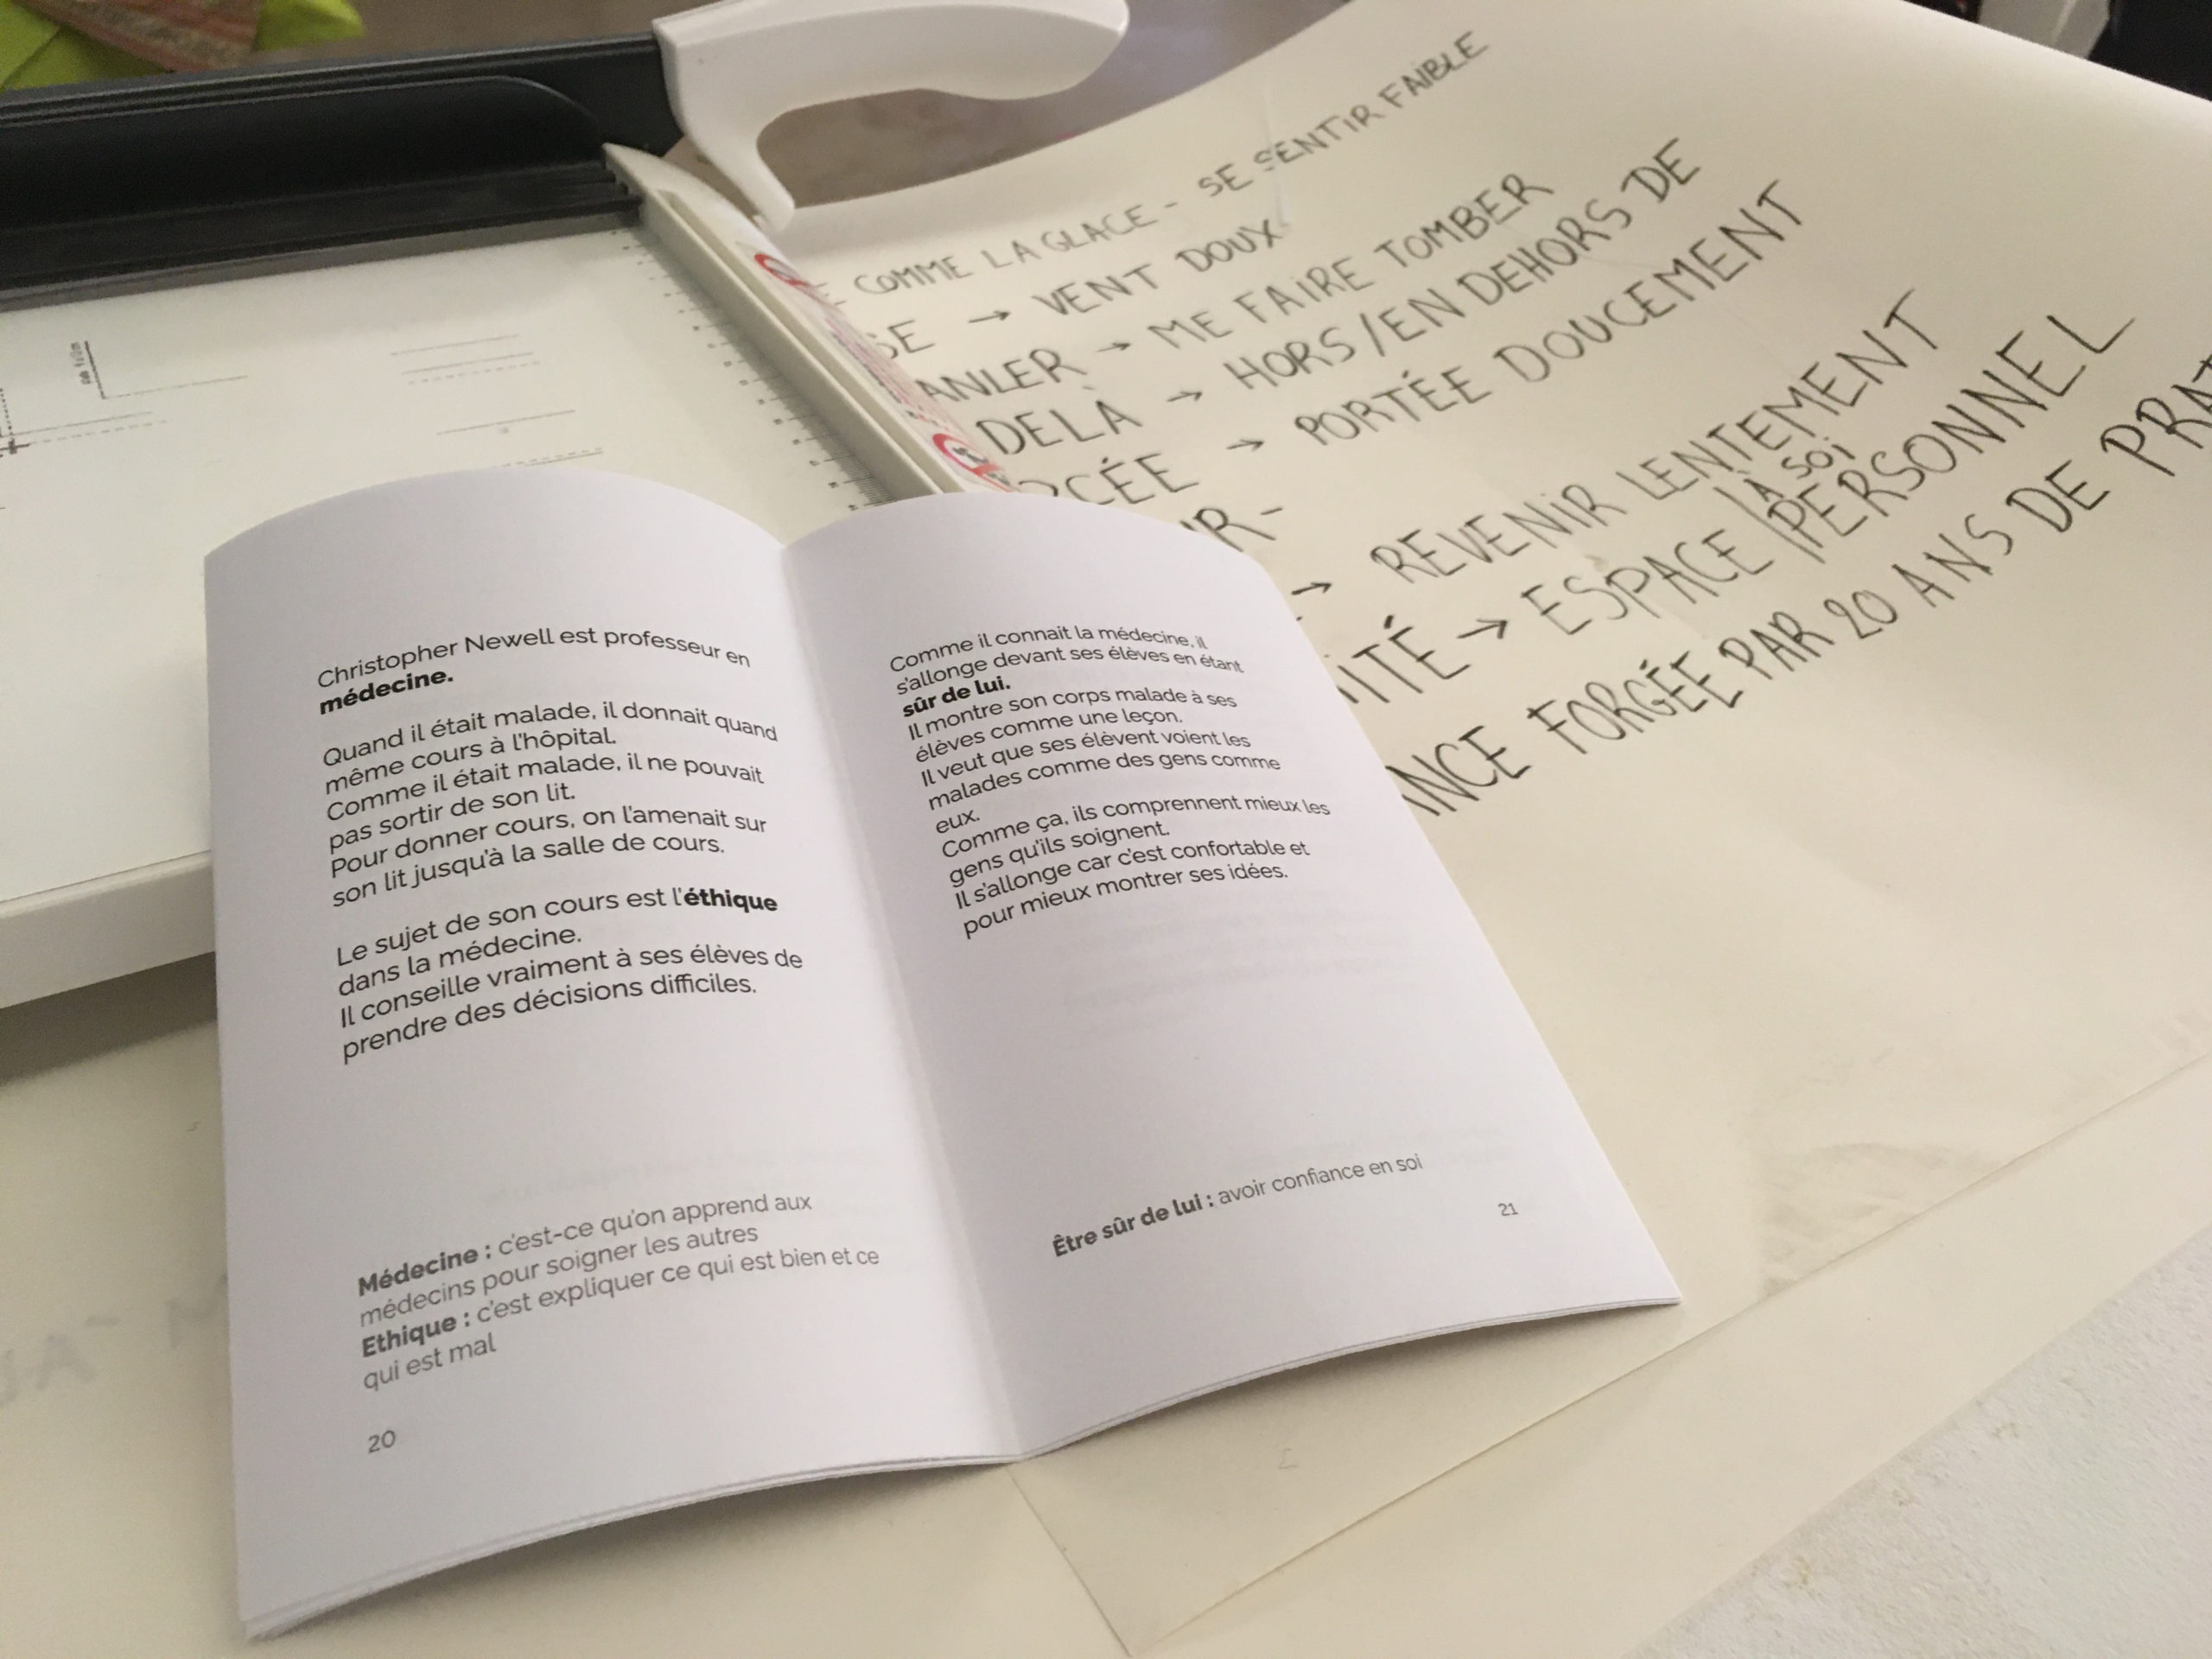 COMME LA GLACE - SE SENTIR FAIBLE
SE → VENT DOUX
ANLER → ME FAIRE TOMBER
DELÀ → HORS/EN DEHORS DE
RCÉE → PORTÉE DOUCEMENT
UR -
→ REVENIR LENTEMENT
À SOI
ITÉ → ESPACE PERSONNEL
ANCE FORGÉE PAR 20 ANS DE PRAT
Christopher Newell est professeur en
médecine.
Quand il était malade, il donnait quand
même cours à l'hôpital.
Comme il était malade, il ne pouvait
pas sortir de son lit.
Pour donner cours, on l'amenait sur
son lit jusqu'à la salle de cours.
Le sujet de son cours est l'éthique
dans la médecine.
Il conseille vraiment à ses élèves de
prendre des décisions difficiles.
Médecine : c'est-ce qu'on apprend aux
médecins pour soigner les autres
Ethique : c'est expliquer ce qui est bien et ce
qui est mal
20
Comme il connait la médecine, il
s'allonge devant ses élèves en étant
sûr de lui.
Il montre son corps malade à ses
élèves comme une leçon.
Il veut que ses élèvent voient les
malades comme des gens comme
eux.
Comme ça, ils comprennent mieux les
gens qu'ils soignent.
Il s'allonge car c'est confortable et
pour mieux montrer ses idées.
Être sûr de lui : avoir confiance en soi
21